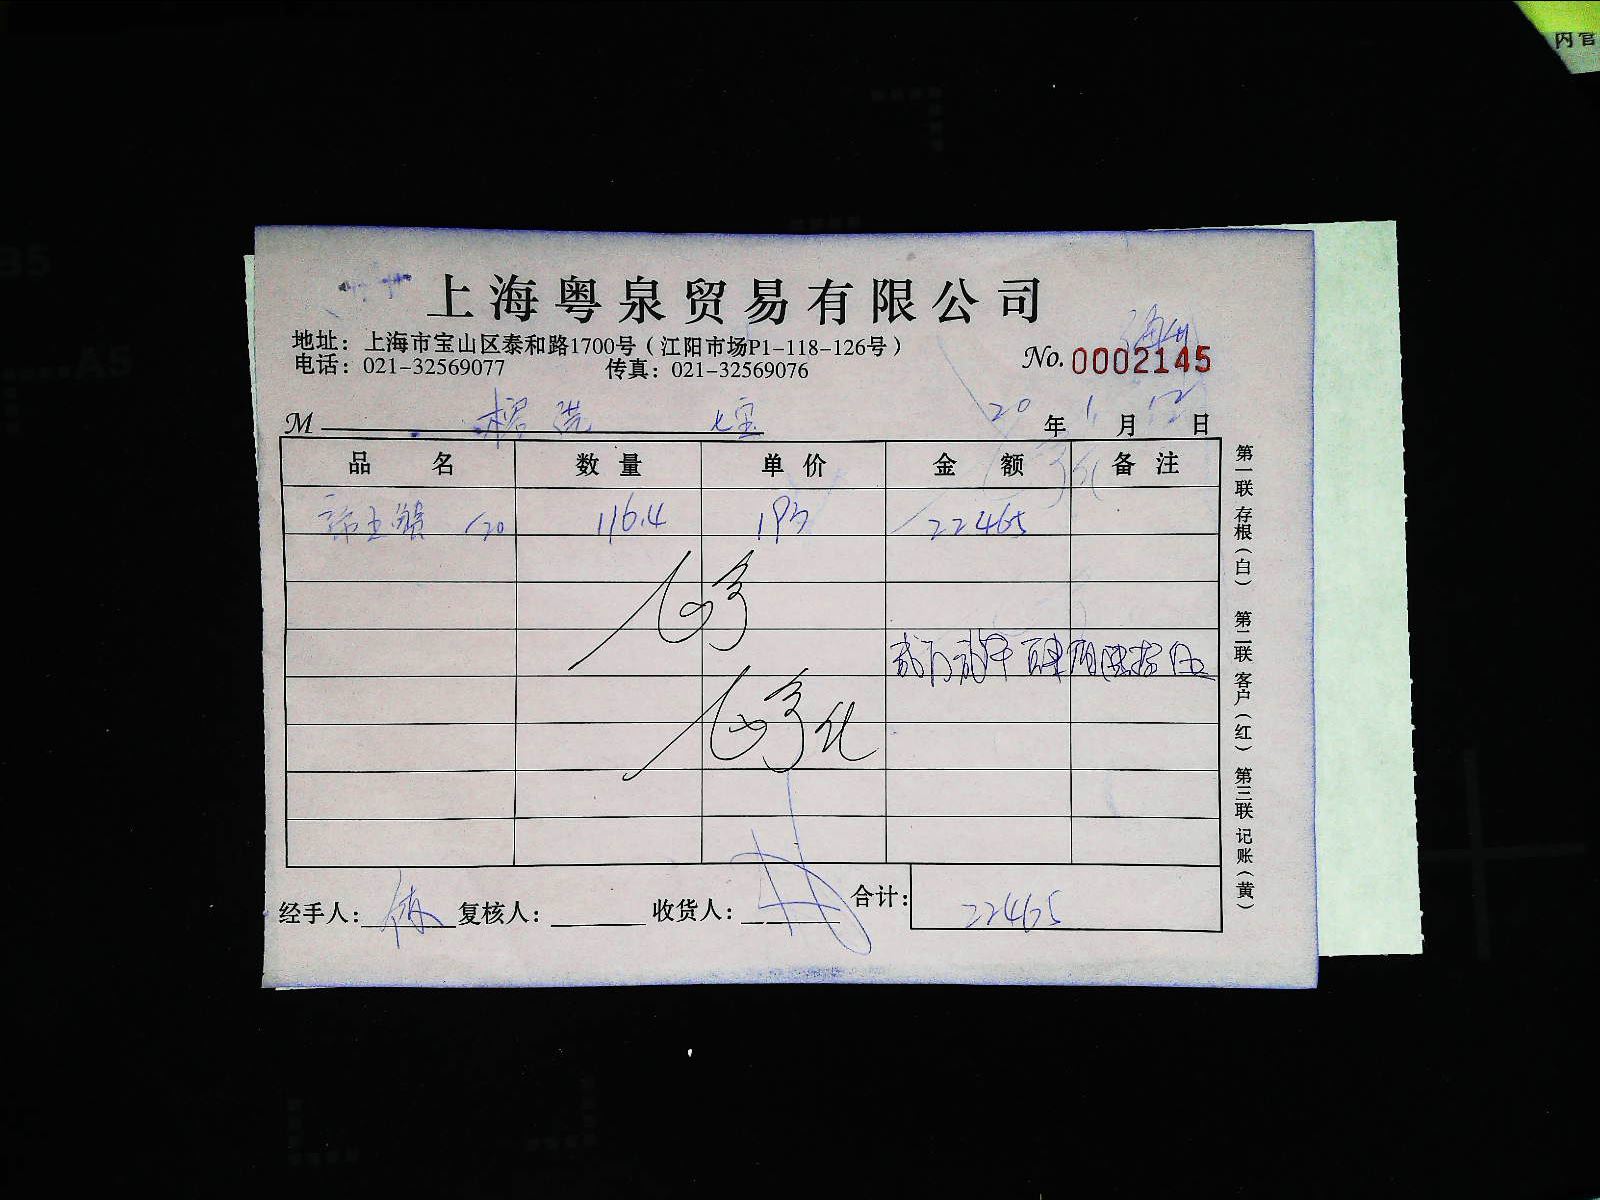 内管
上海粤泉贸易有限公司
地址：上海市宝山区泰和路1700号（江阳市场P1-118-126号）
电话：021-32569077 传真：021-32569076
No. 0002145
M 七宝 20年1月12日
品名 数量 单价 金额 备注
帝王蟹 120 116.4 193 22465
贰万贰仟肆佰陆拾伍
经手人： 复核人： 收货人： 合计：22465
第一联 存根（白） 第二联 客户（红） 第三联 记账（黄）